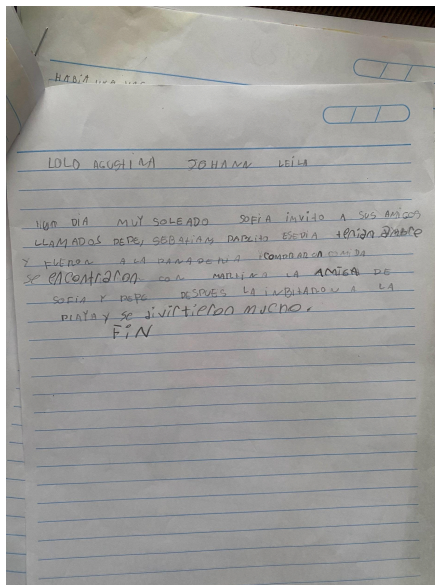 HABIA UNA
LOLO AGUSTINA JOHANN LEILA
UN DIA MUY SOLEADO SOFIA INVITO A SUS AMIGOS
LLAMADOS PEPE, SEBATIAN PABLITO ESEDIA tenian ambre
Y FUERON A LA PANADERIA COMPRARON COMIDA
se encontraron con MARTINA LA AMIGA DE
SOFIA Y PEPE DESPUES LA INBITARON A LA
PLAYA Y se divirtieron mucho.
FIN